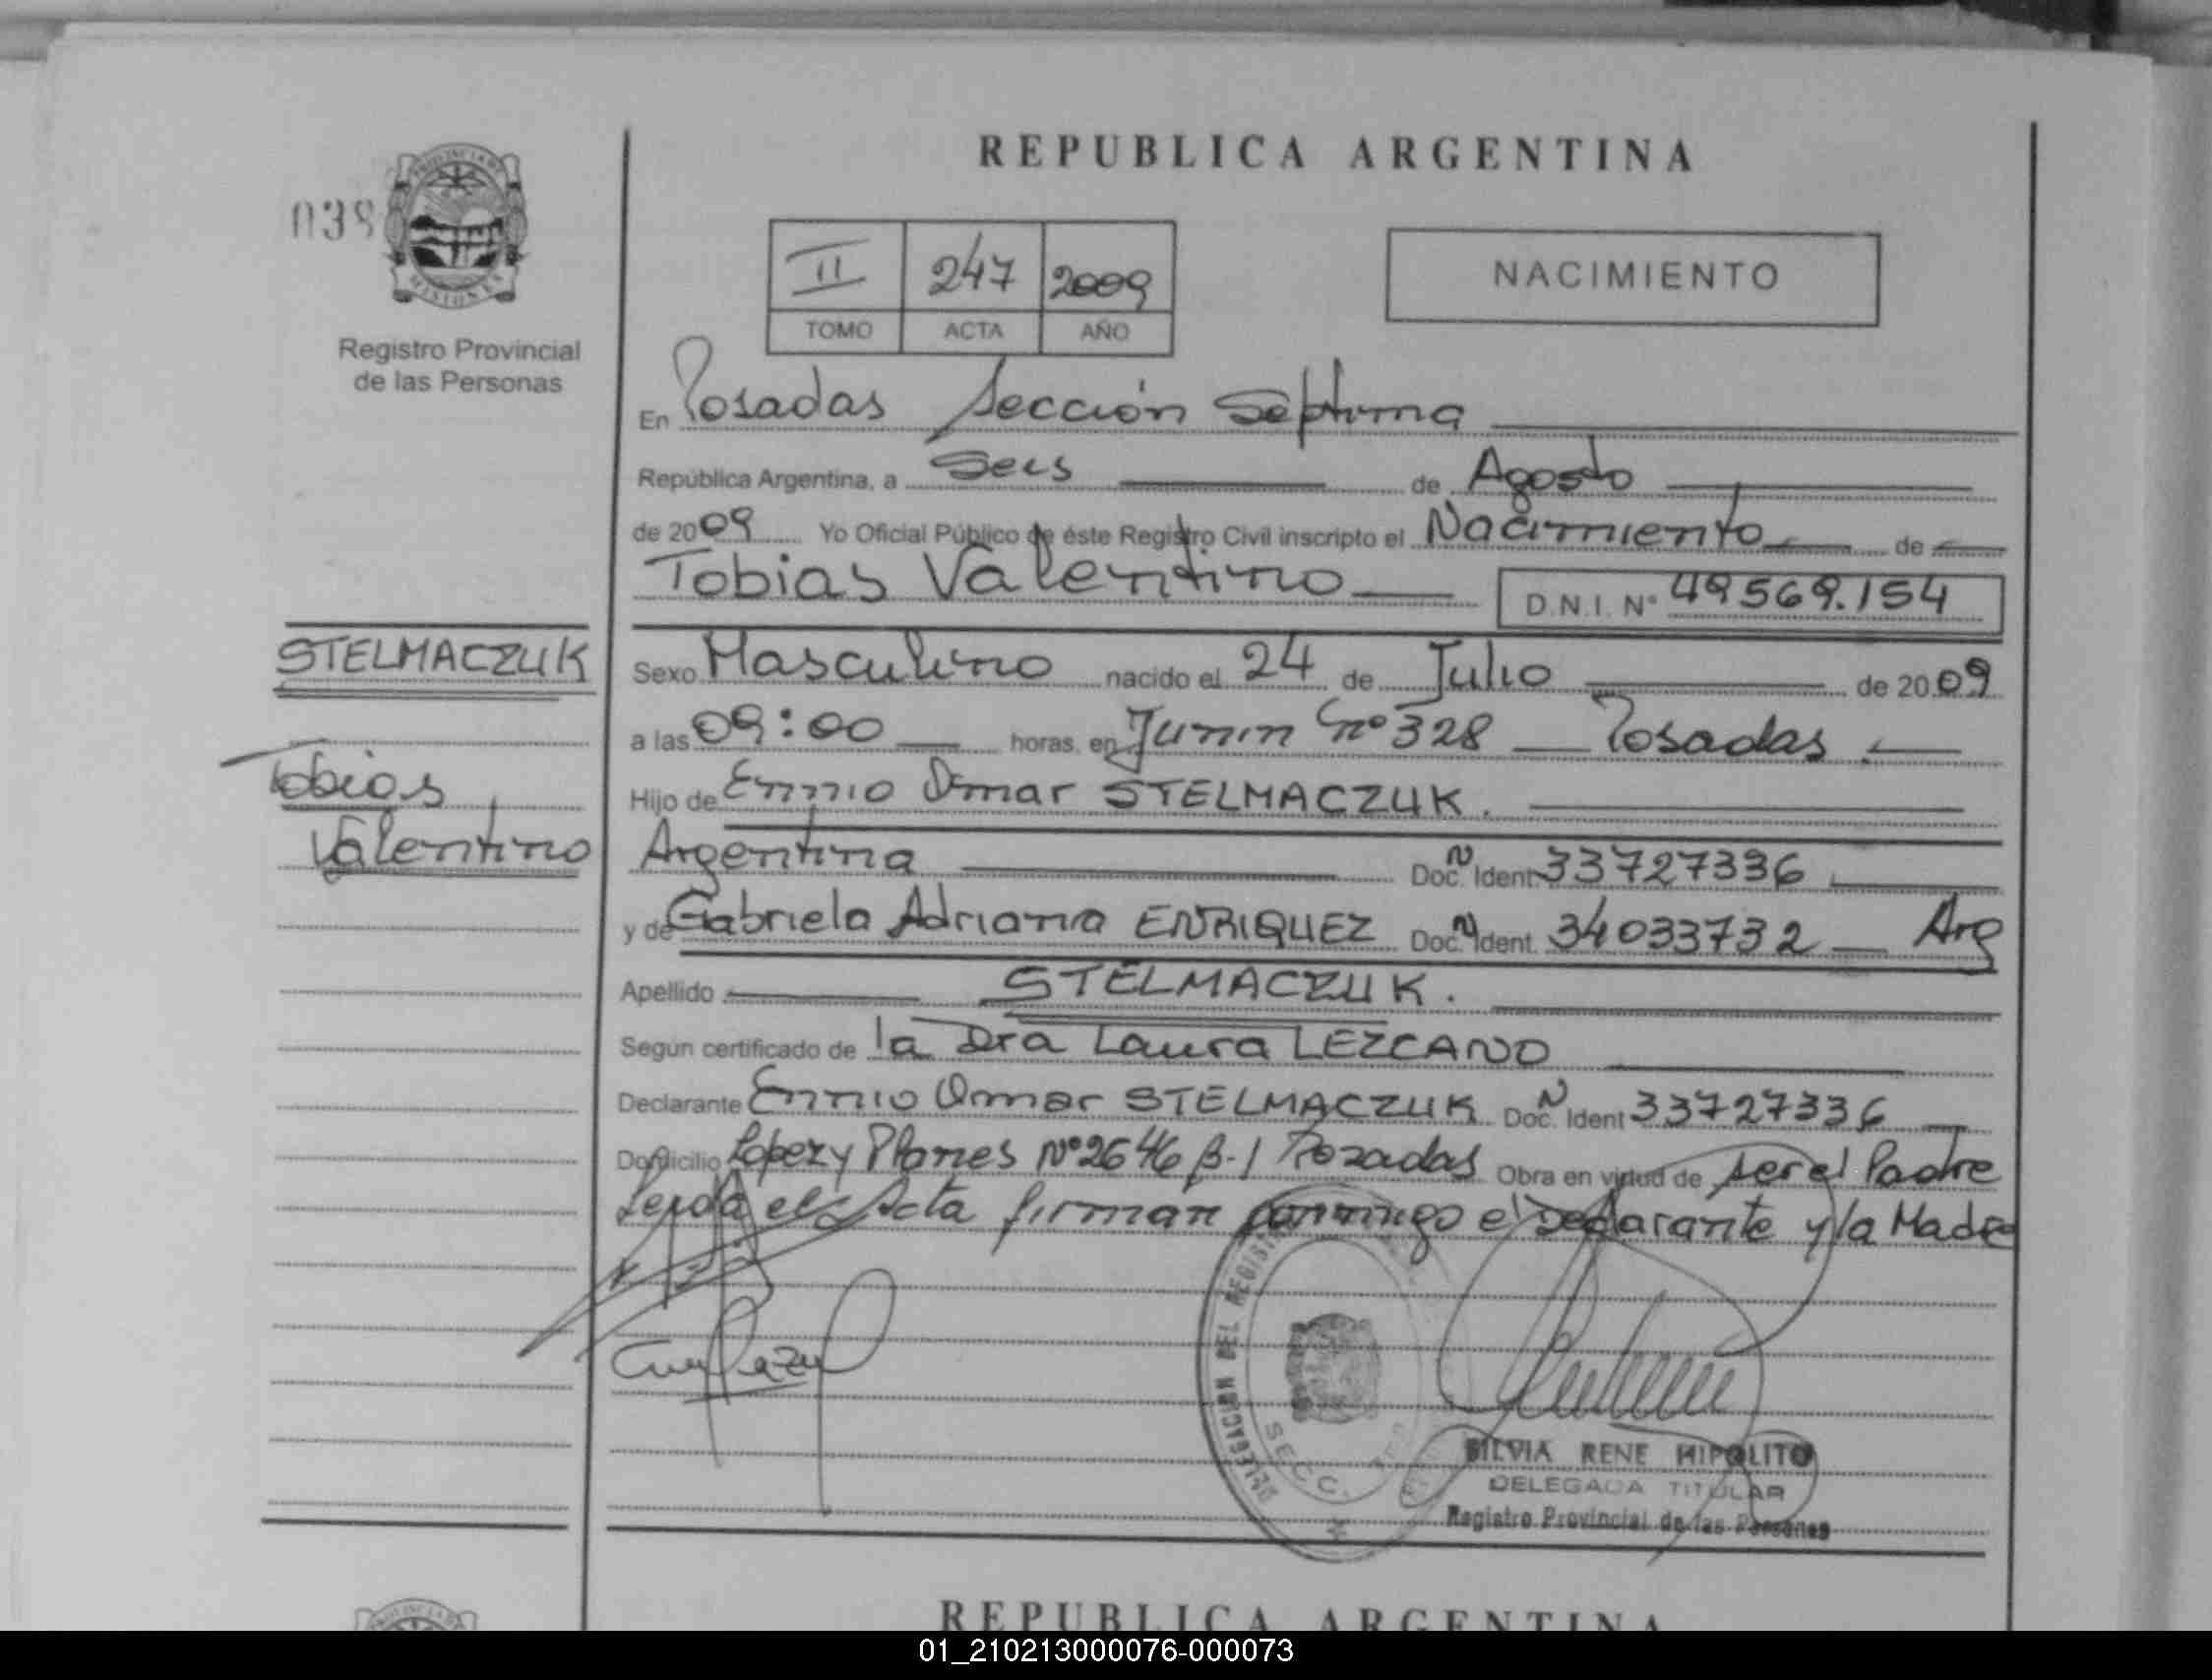 REPUBLICA ARGENTINA
038
PROVINCIA DE
MISIONES
Registro Provincial
de las Personas
II 247 2009
TOMO ACTA AÑO
NACIMIENTO
En Posadas Sección Septima
República Argentina, a Seis de Agosto
de 2009 Yo Oficial Público de éste Registro Civil inscripto el Nacimiento de
Tobias Valentino D.N.I. Nº 49569.154
STELMACZUK
Tobias
Valentino
Sexo Masculino nacido el 24 de Julio de 2009
a las 09:00 horas, en Junin nº 328 Posadas.
Hijo de Ennio Omar STELMACZUK.
Argentina Doc. N Ident 33727336
y de Gabriela Adriana ENRIQUEZ Doc. N Ident. 34033732 Arg
Apellido STELMACZUK.
Según certificado de la Dra Laura LEZCANO
Declarante Ennio Omar STELMACZUK Doc. N Ident 33727336
Domicilio Lopez y Planes Nº 2646 B-1 Posadas Obra en virtud de ser el Padre
Leida el Acta firman conmigo el Declarante y la Madre
DELEGACION DEL REGISTRO
SECC.
SILVIA RENE HIPOLITO
DELEGADA TITULAR
Registro Provincial de las Personas
REPUBLICA ARGENTINA
01_210213000076-000073